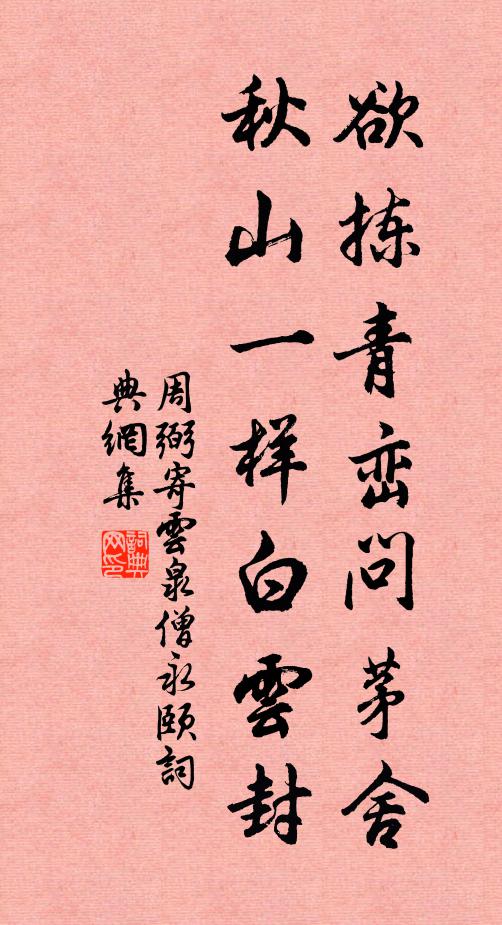 欲拣青峦问茅舍
秋山一样白雲封
周弼寄雲泉僧永颐詞
典網集
詞典
网印